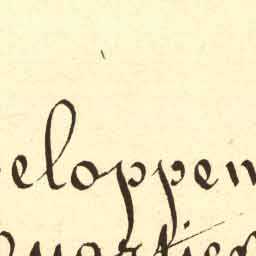 eloppem
quartier